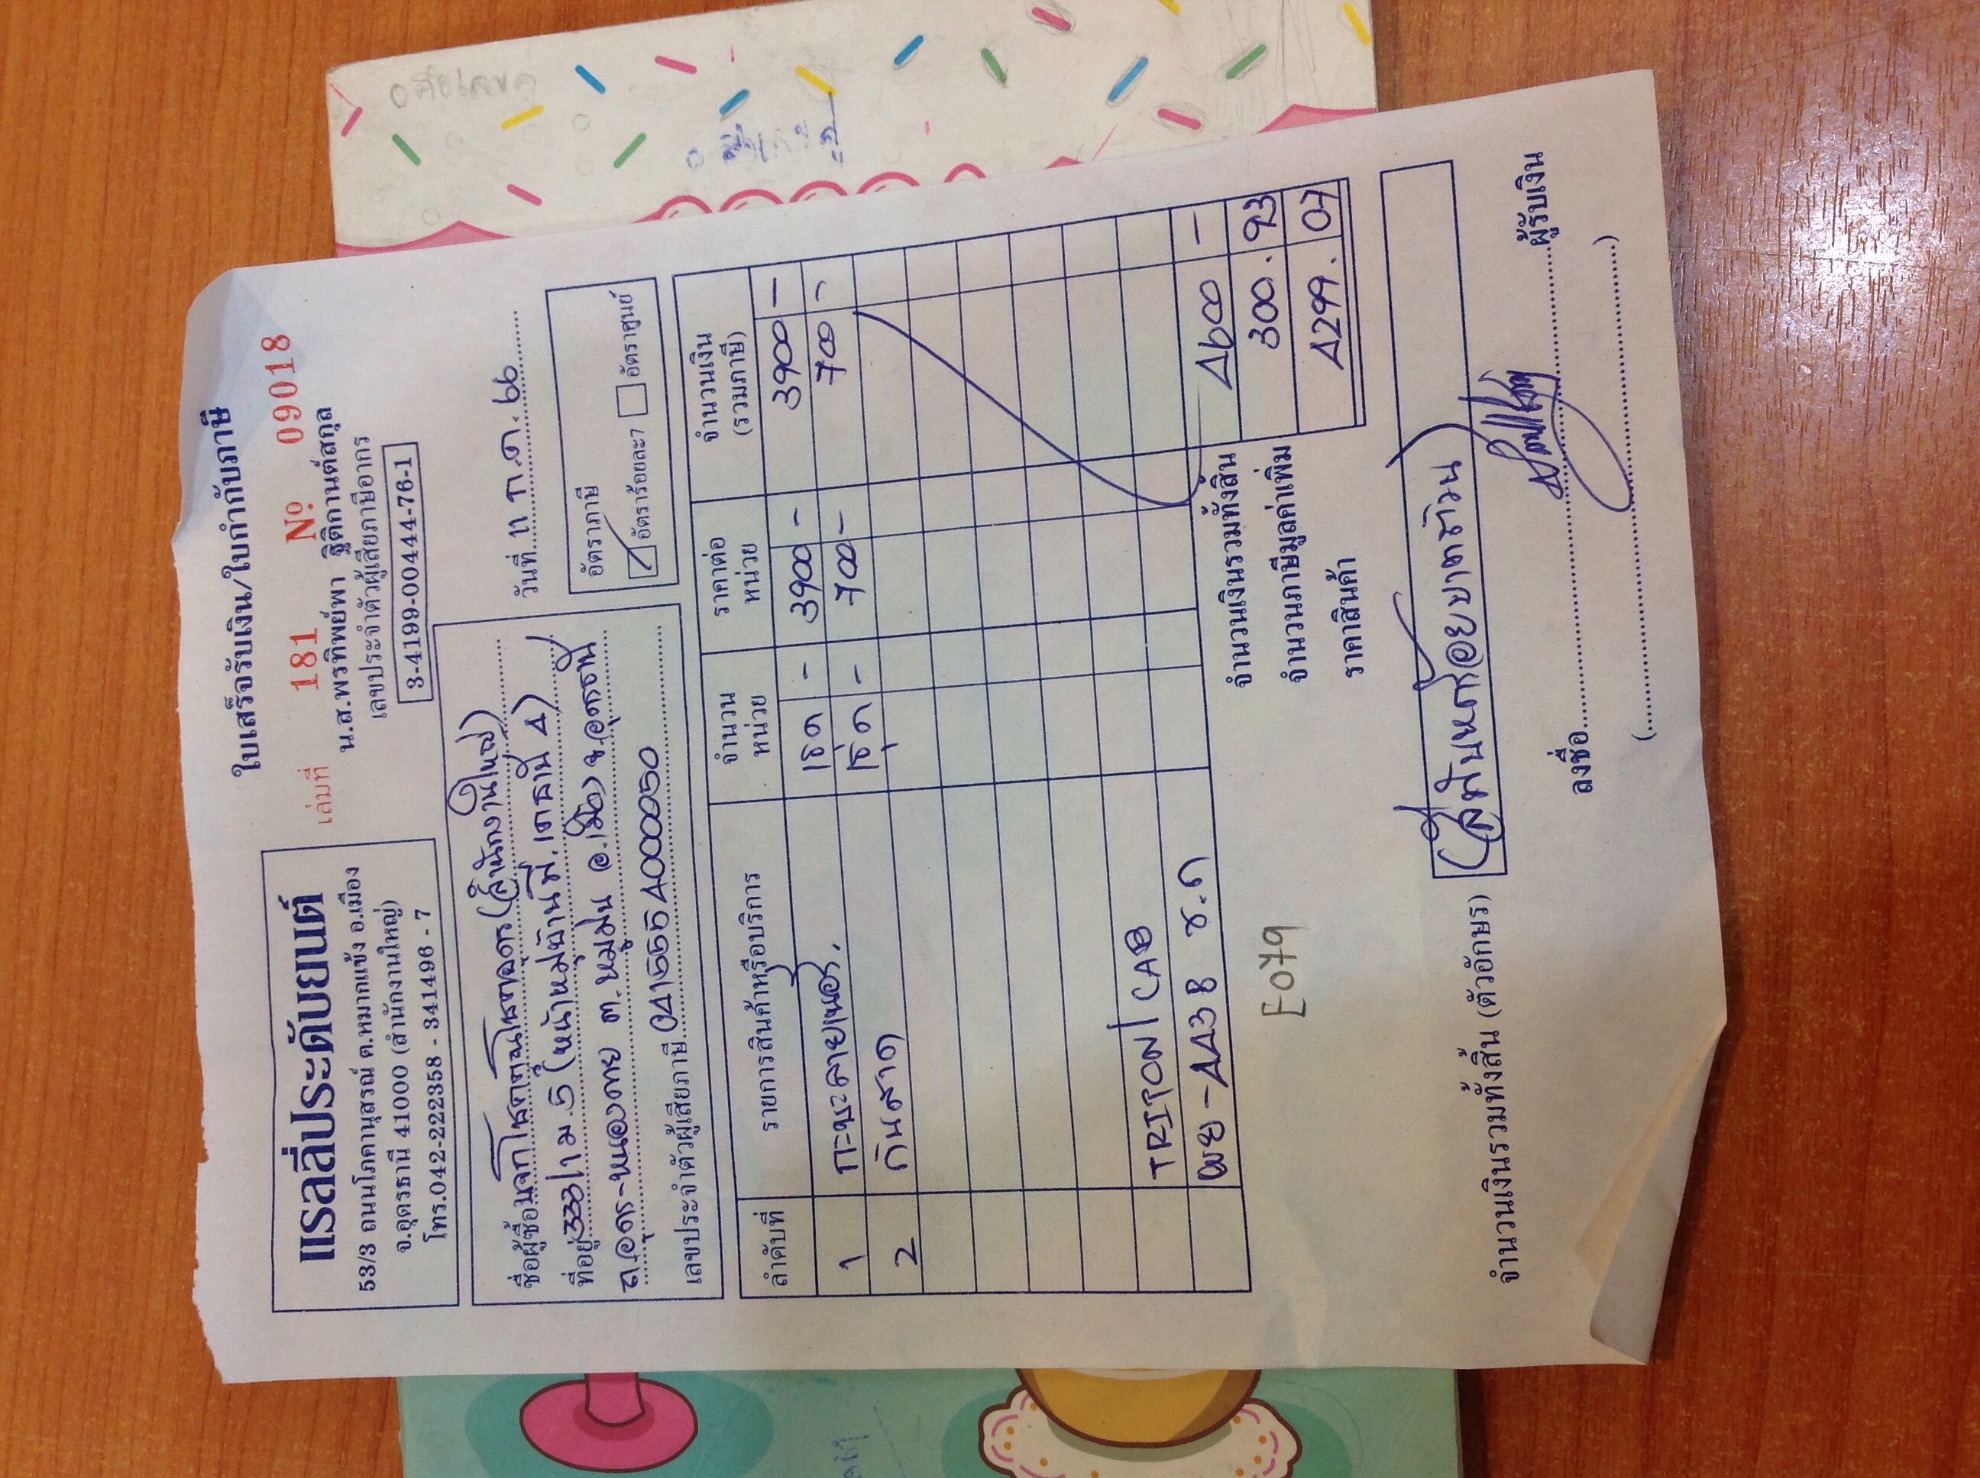 ใบเสร็จรับเงิน/ใบกำกับภาษี
แรลลี่ประดับยนต์
53/3 ถนนโภคานุสรณ์ ต.หมากแข้ง อ.เมือง
จ.อุดรธานี 41000 (สำนักงานใหญ่)
โทร.042-222358 - 341496 - 7
เล่มที่ 181 Nº 09018
น.ส.พรทิพย์พา ฐิติกานต์สกุล
เลขประจำตัวผู้เสียภาษีอากร
3-4199-00444-76-1
วันที่ 11 ก.ค. 66
ชื่อผู้ซื้อ (สำนักงานใหญ่)
ที่อยู่ 333/1 ม.5 (หน้าหมู่บ้านพี.เคธานี 4)
ถ.อุดร-หนองคาย ต.หมูม่น อ.เมือง จ.อุดรธานี
เลขประจำตัวผู้เสียภาษี 0415554000050
อัตราภาษี
อัตราร้อยละ7 อัตราศูนย์
ลำดับที่ รายการสินค้าหรือบริการ จำนวนหน่วย ราคาต่อหน่วย จำนวนเงิน (รวมภาษี)
1 กะบะลายเนอร์ 1ชุด - 3900 - 3900 -
2 กันสาด 1ชุด - 700 - 700 -
TRITON / CAB
ผย - 4438 ช.ก
จำนวนเงินรวมทั้งสิ้น 4600 -
จำนวนภาษีมูลค่าเพิ่ม 300.93
ราคาสินค้า 4299.07
E079
จำนวนเงินรวมทั้งสิ้น (ตัวอักษร) (สี่พันหกร้อยบาทถ้วน)
ลงชื่อ ผู้รับเงิน
( )